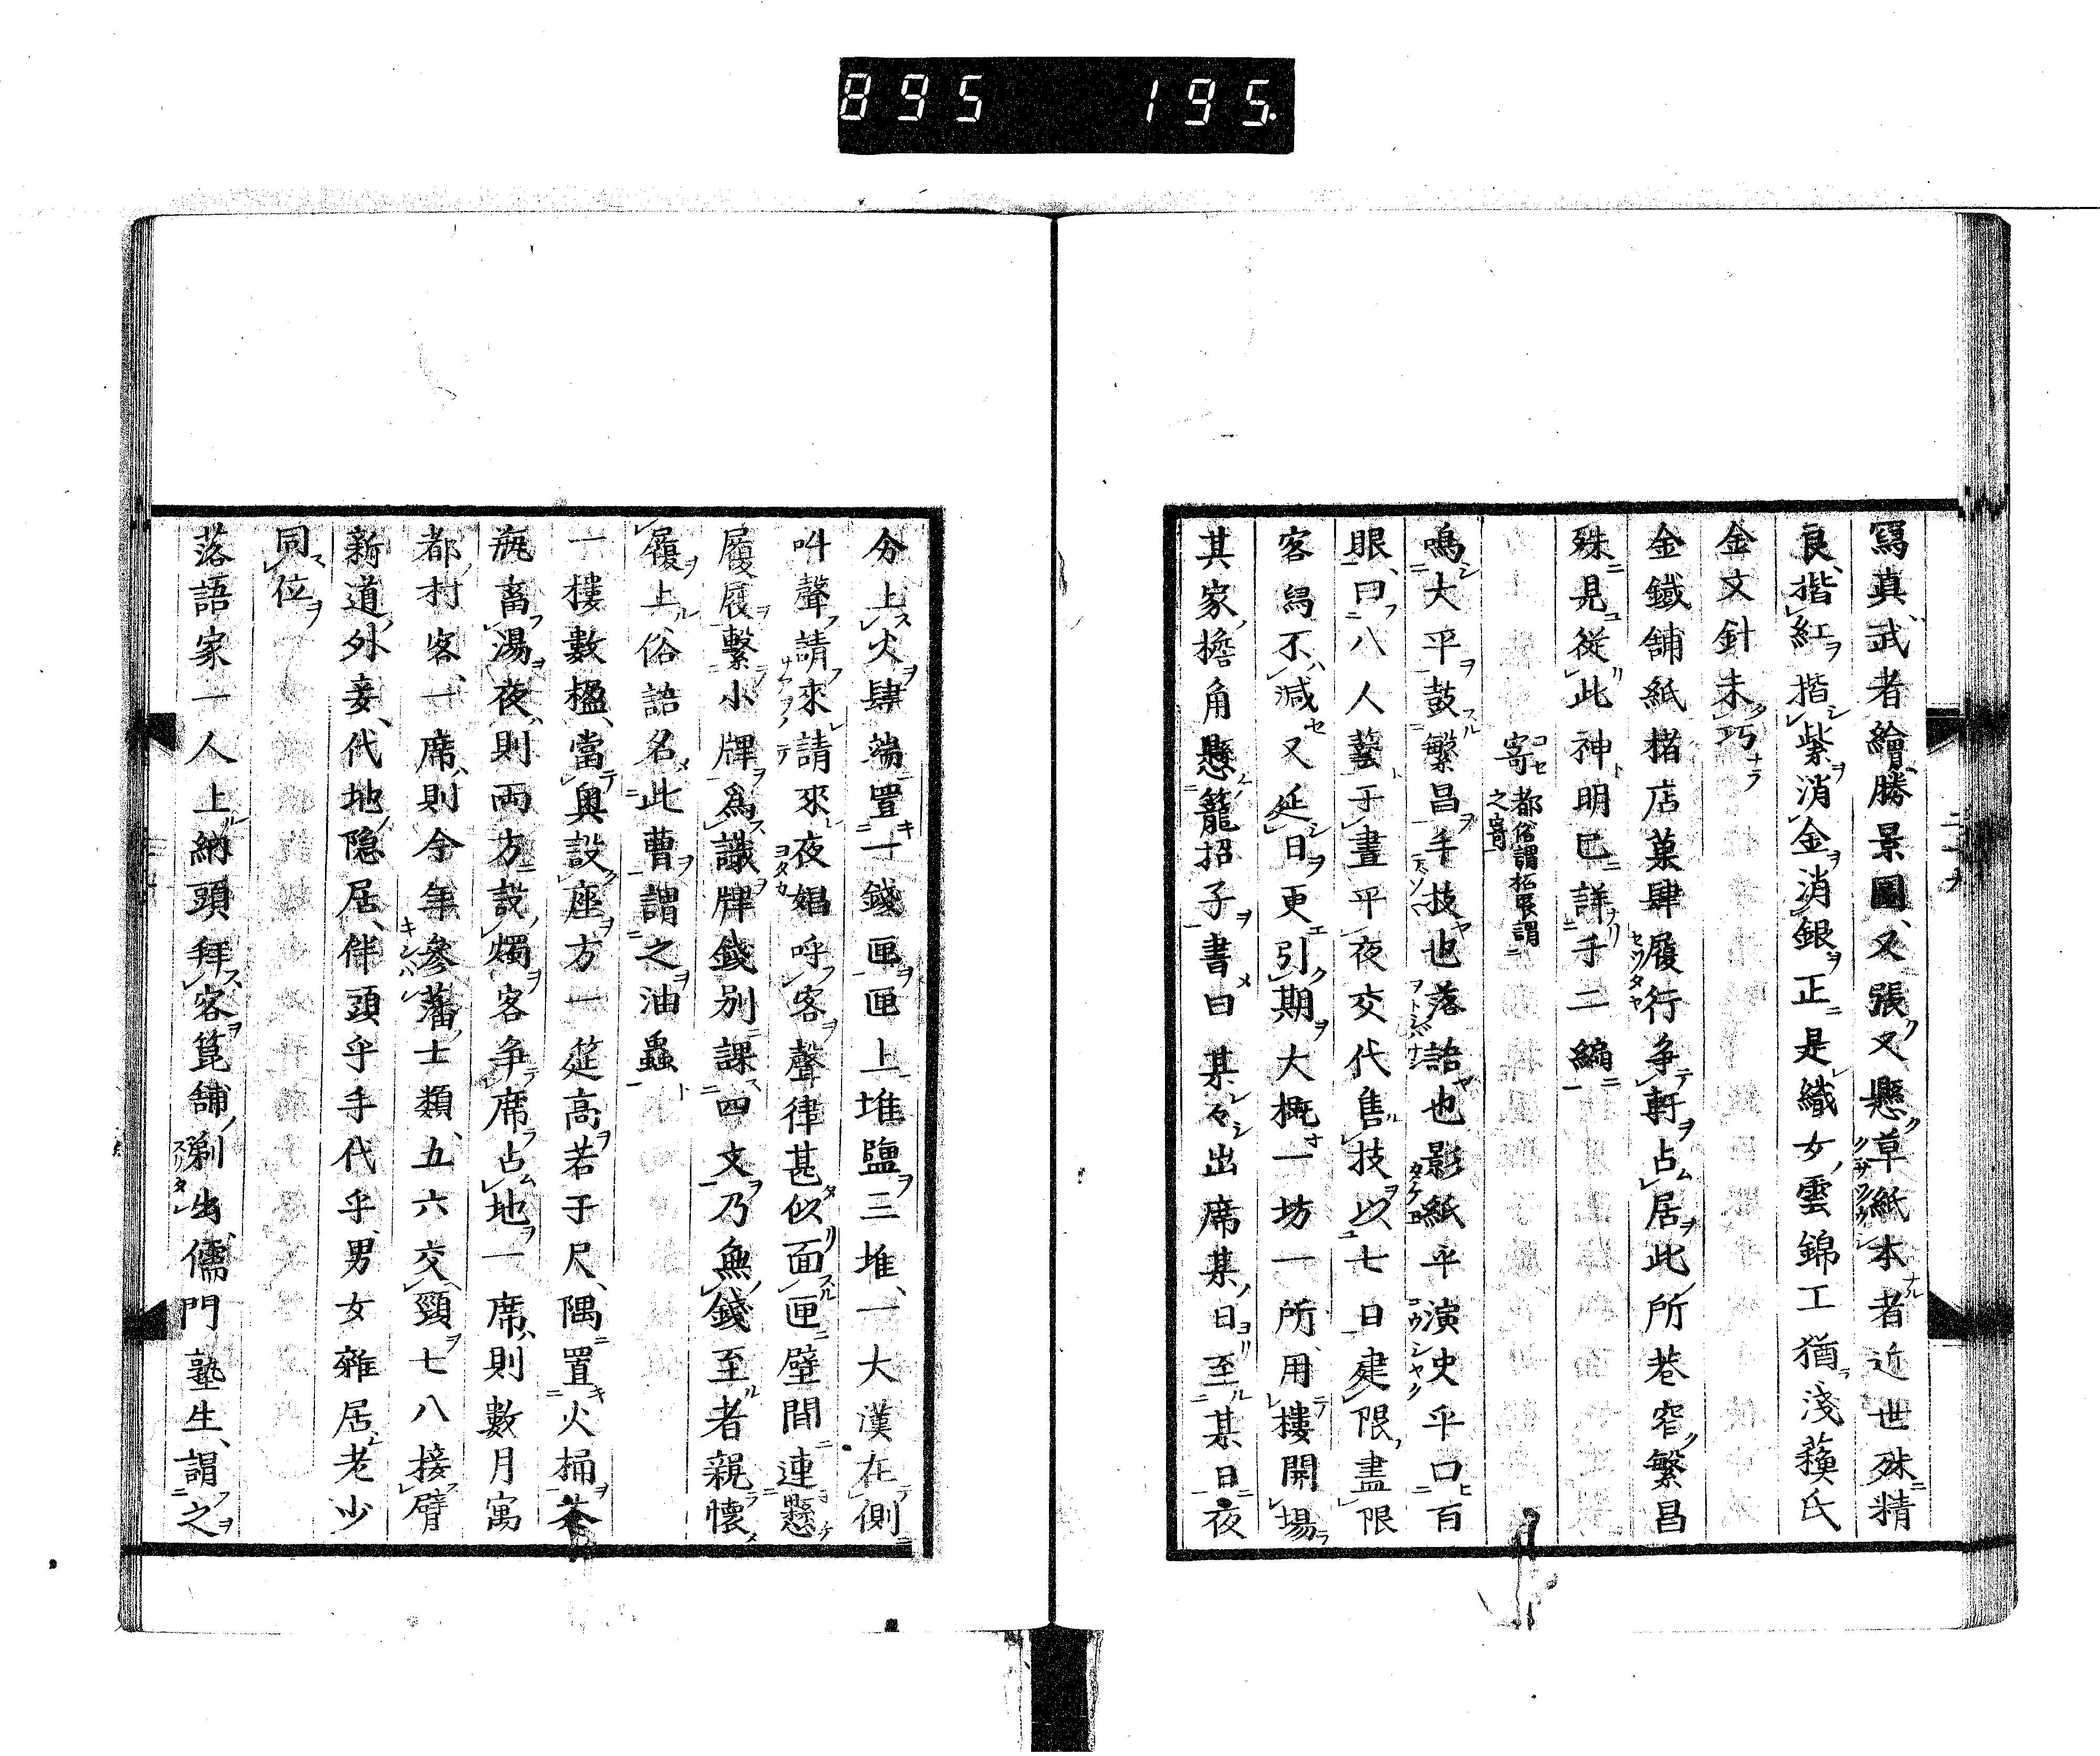 895 195.
寫真武者繪勝景圖又張又懸草紙本者近世殊精
良揩紅揩紫消金消銀正是織女雲錦工猶淺蘓氏
金文針未巧
金鐵舗紙楮店菓肆履行争軒占居此所巷窄繁昌
殊見従此神明已詳于二編
寄 都俗謂招衆謂之寄
鳴大平鼓繁昌手技也落語也影紙乎演史乎口百
眼曰八人藝于晝乎夜交代售技以七日建限盡限
客舄不減又延日更引期大概一坊一所用樓開場
其家擔角懸籠招子書曰某々出席某日至某日夜
分上火肆端置一錢匣匣上堆鹽三堆一大漢在側
叫聲請來請來夜娼呼客聲律甚似面匣壁間連懸
履屐繫小牌爲識牌錢別課四文乃無錢至者親懐
履上俗語名此曹謂之油蟲
一樓數楹當奥設座方一筵高若于尺隅置火桶茶
瓶畜湯夜則両方設燭客争席占地一席則數月寓
都村客一席則今年參藩士類五六交頸七八接臂
新道外妾代地隠居伴頭乎手代乎男女雜居老少
同位
落語家一人上納頭拜客篦舗剃出儒門塾生謂之